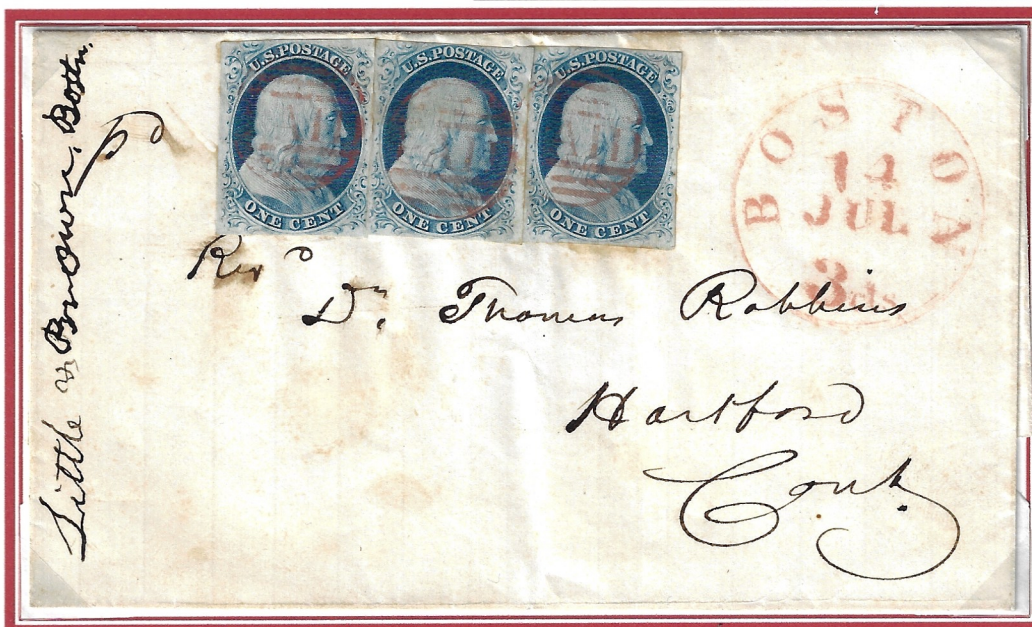 Little & Brown, Boston.
Pd
U.S. POSTAGE
ONE CENT
U.S. POSTAGE
ONE CENT
U.S. POSTAGE
ONE CENT
BOSTON
14
JUL
3 cts
Revd
Dr. Thomas Robbins
Hartford
Cont.